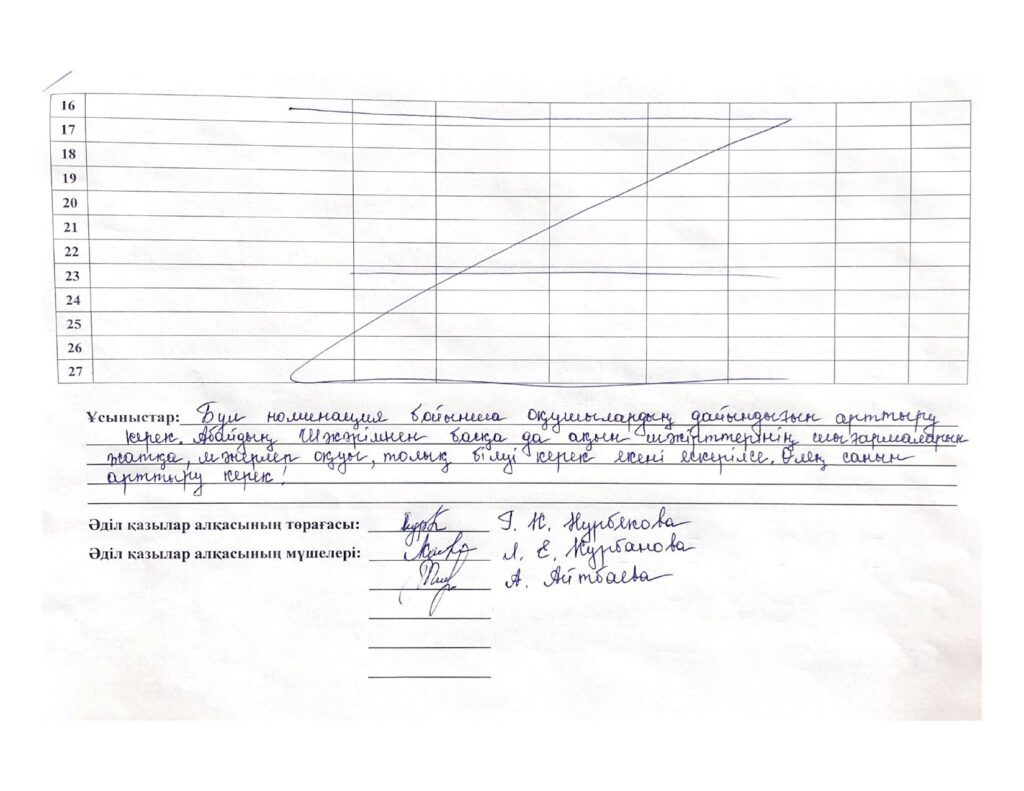 16
17
18
19
20
21
22
23
24
25
26
27
Ұсыныстар: Бұл номинация бойынша оқушылардың дайындығын арттыру
керек. Абайдың Шәкәрімнен басқа да ақын шәкірттерінің шығармаларын
жатқа, мәнерлеп оқуы, толық білуі керек екені ескерілсе. Өлең санын
арттыру керек!
Әділ қазылар алқасының төрағасы: Г. К. Нурбекова
Әділ қазылар алқасының мүшелері: Л. Е. Курбанова
А. Айтбаева